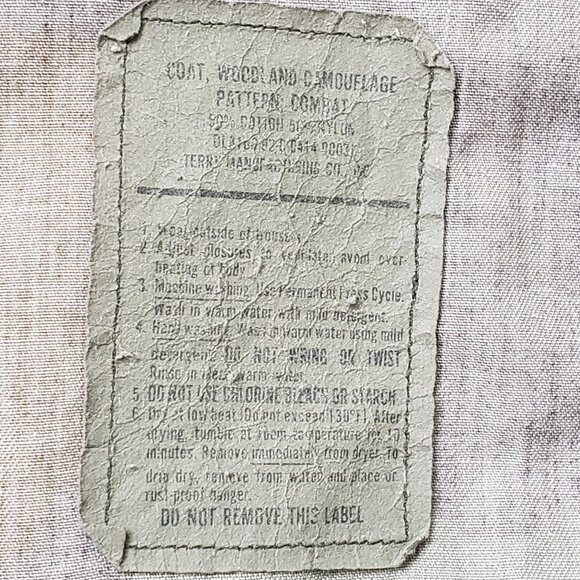 COAT, WOODLAND CAMOUFLAGE
PATTERN, COMBAT
50% COTTON 50% NYLON
TERRY MANUFACTURING CO., INC
1. Wear outside of trousers
2. Adjust closures to ventilate, avoid over
heating of body
3. Machine washing. Use Permanent Press Cycle.
Wash in warm water with mild detergent.
4. Hand washing. Wash in warm water using mild
detergent. DO NOT WRING OR TWIST
Rinse in clean warm water.
5. DO NOT USE CHLORINE BLEACH OR STARCH.
6. Dry at low heat (Do not exceed 130°F). After
drying, tumble at room temperature for 10
minutes. Remove immediately from dryer. To
drip dry, remove from water and place on
rust-proof hanger.
DO NOT REMOVE THIS LABEL